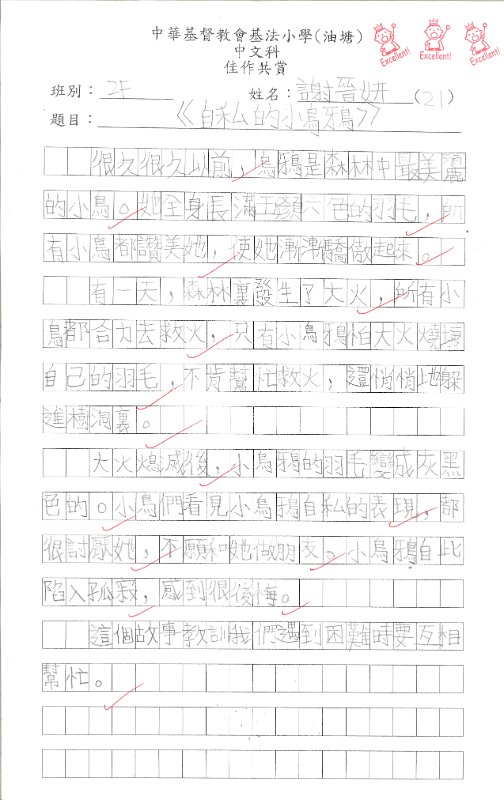 中華基督教會基法小學(油塘)
中文科
佳作共賞
Excellent! Excellent! Excellent!
班別：2F 姓名：謝晉妍(21)
題目：《自私的小烏鴉》
很久很久以前，烏鴉是森林中最美麗
的小鳥。她全身長滿五顏六色的羽毛，所
有小鳥都讚美她，使她漸漸驕傲起來。
有一天，森林裏發生了大火，所有小
鳥都合力去救火，只有小烏鴉怕大火燒壞
自己的羽毛，不肯幫忙救火，還悄悄地躲
進樹洞裏。
大火熄滅後，小烏鴉的羽毛變成灰黑
色的。小鳥們看見小烏鴉自私的表現，都
很討厭她，不願和她做朋友。小烏鴉自此
陷入孤寂，感到很後悔。
這個故事教訓我們遇到困難時要互相
幫忙。